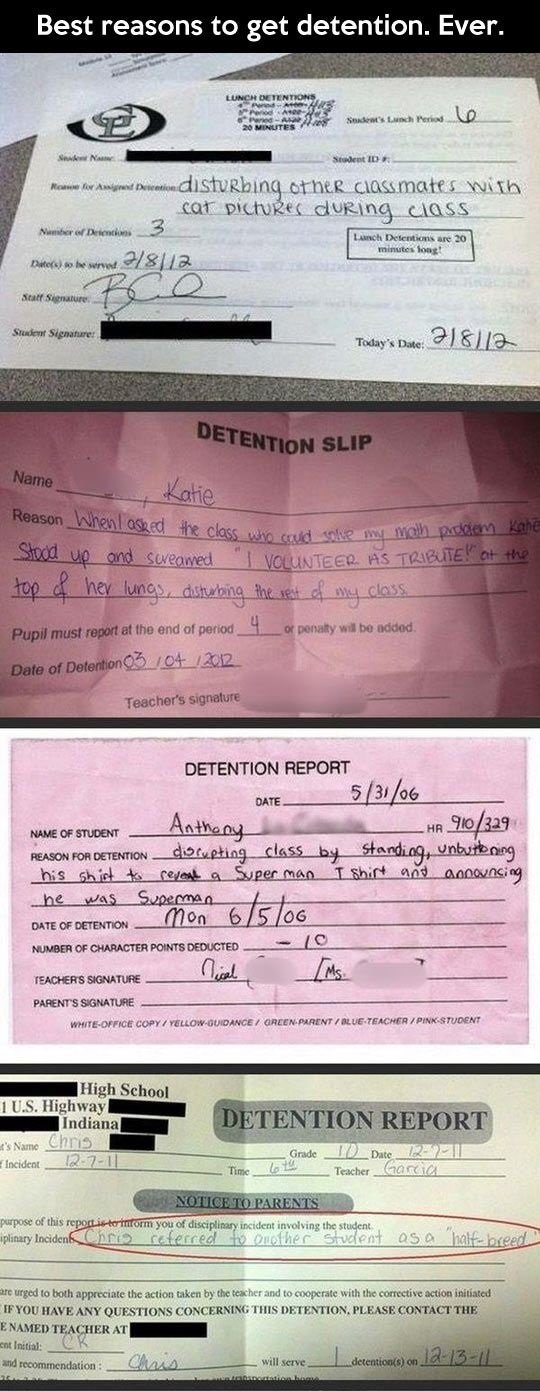 Best reasons to get detention. Ever.
LUNCH DETENTIONS
20 MINUTES
Student's Lunch Period 6
Student Name:
Student ID #:
Reason for Assigned Detention: disturbing other classmates with
cat pictures during class
Number of Detentions 3
Lunch Detentions are 20
minutes long!
Date(s) to be served 2/8/12
Staff Signature:
Student Signature:
Today's Date: 2/8/12
DETENTION SLIP
Name Katie
Reason When I asked the class who could solve my math problem Katie
Stood up and screamed "I VOLUNTEER AS TRIBUTE!" at the
top of her lungs, disturbing the rest of my class.
Pupil must report at the end of period 4 or penalty will be added.
Date of Detention 03/04/2012
Teacher's signature
DETENTION REPORT
DATE 5/31/06
NAME OF STUDENT Anthony HR 910/329
REASON FOR DETENTION disrupting class by standing, unbuttoning
his shirt to reveal a Super man T Shirt and announcing
he was Superman
DATE OF DETENTION Mon 6/5/06
NUMBER OF CHARACTER POINTS DEDUCTED - 10
TEACHER'S SIGNATURE [Ms.
PARENT'S SIGNATURE
WHITE-OFFICE COPY / YELLOW-GUIDANCE / GREEN-PARENT / BLUE-TEACHER / PINK-STUDENT
High School
1 U.S. Highway
Indiana
DETENTION REPORT
t's Name Chris
Grade 10 Date 12-7-11
f Incident 12-7-11
Time 6th Teacher Garcia
NOTICE TO PARENTS
purpose of this report is to inform you of disciplinary incident involving the student.
iplinary Incident: Chris referred to another student as a "half-breed"
are urged to both appreciate the action taken by the teacher and to cooperate with the corrective action initiated
IF YOU HAVE ANY QUESTIONS CONCERNING THIS DETENTION, PLEASE CONTACT THE
E NAMED TEACHER AT
ent Initial: CR
and recommendation : Chris will serve 1 detention(s) on 12-13-11